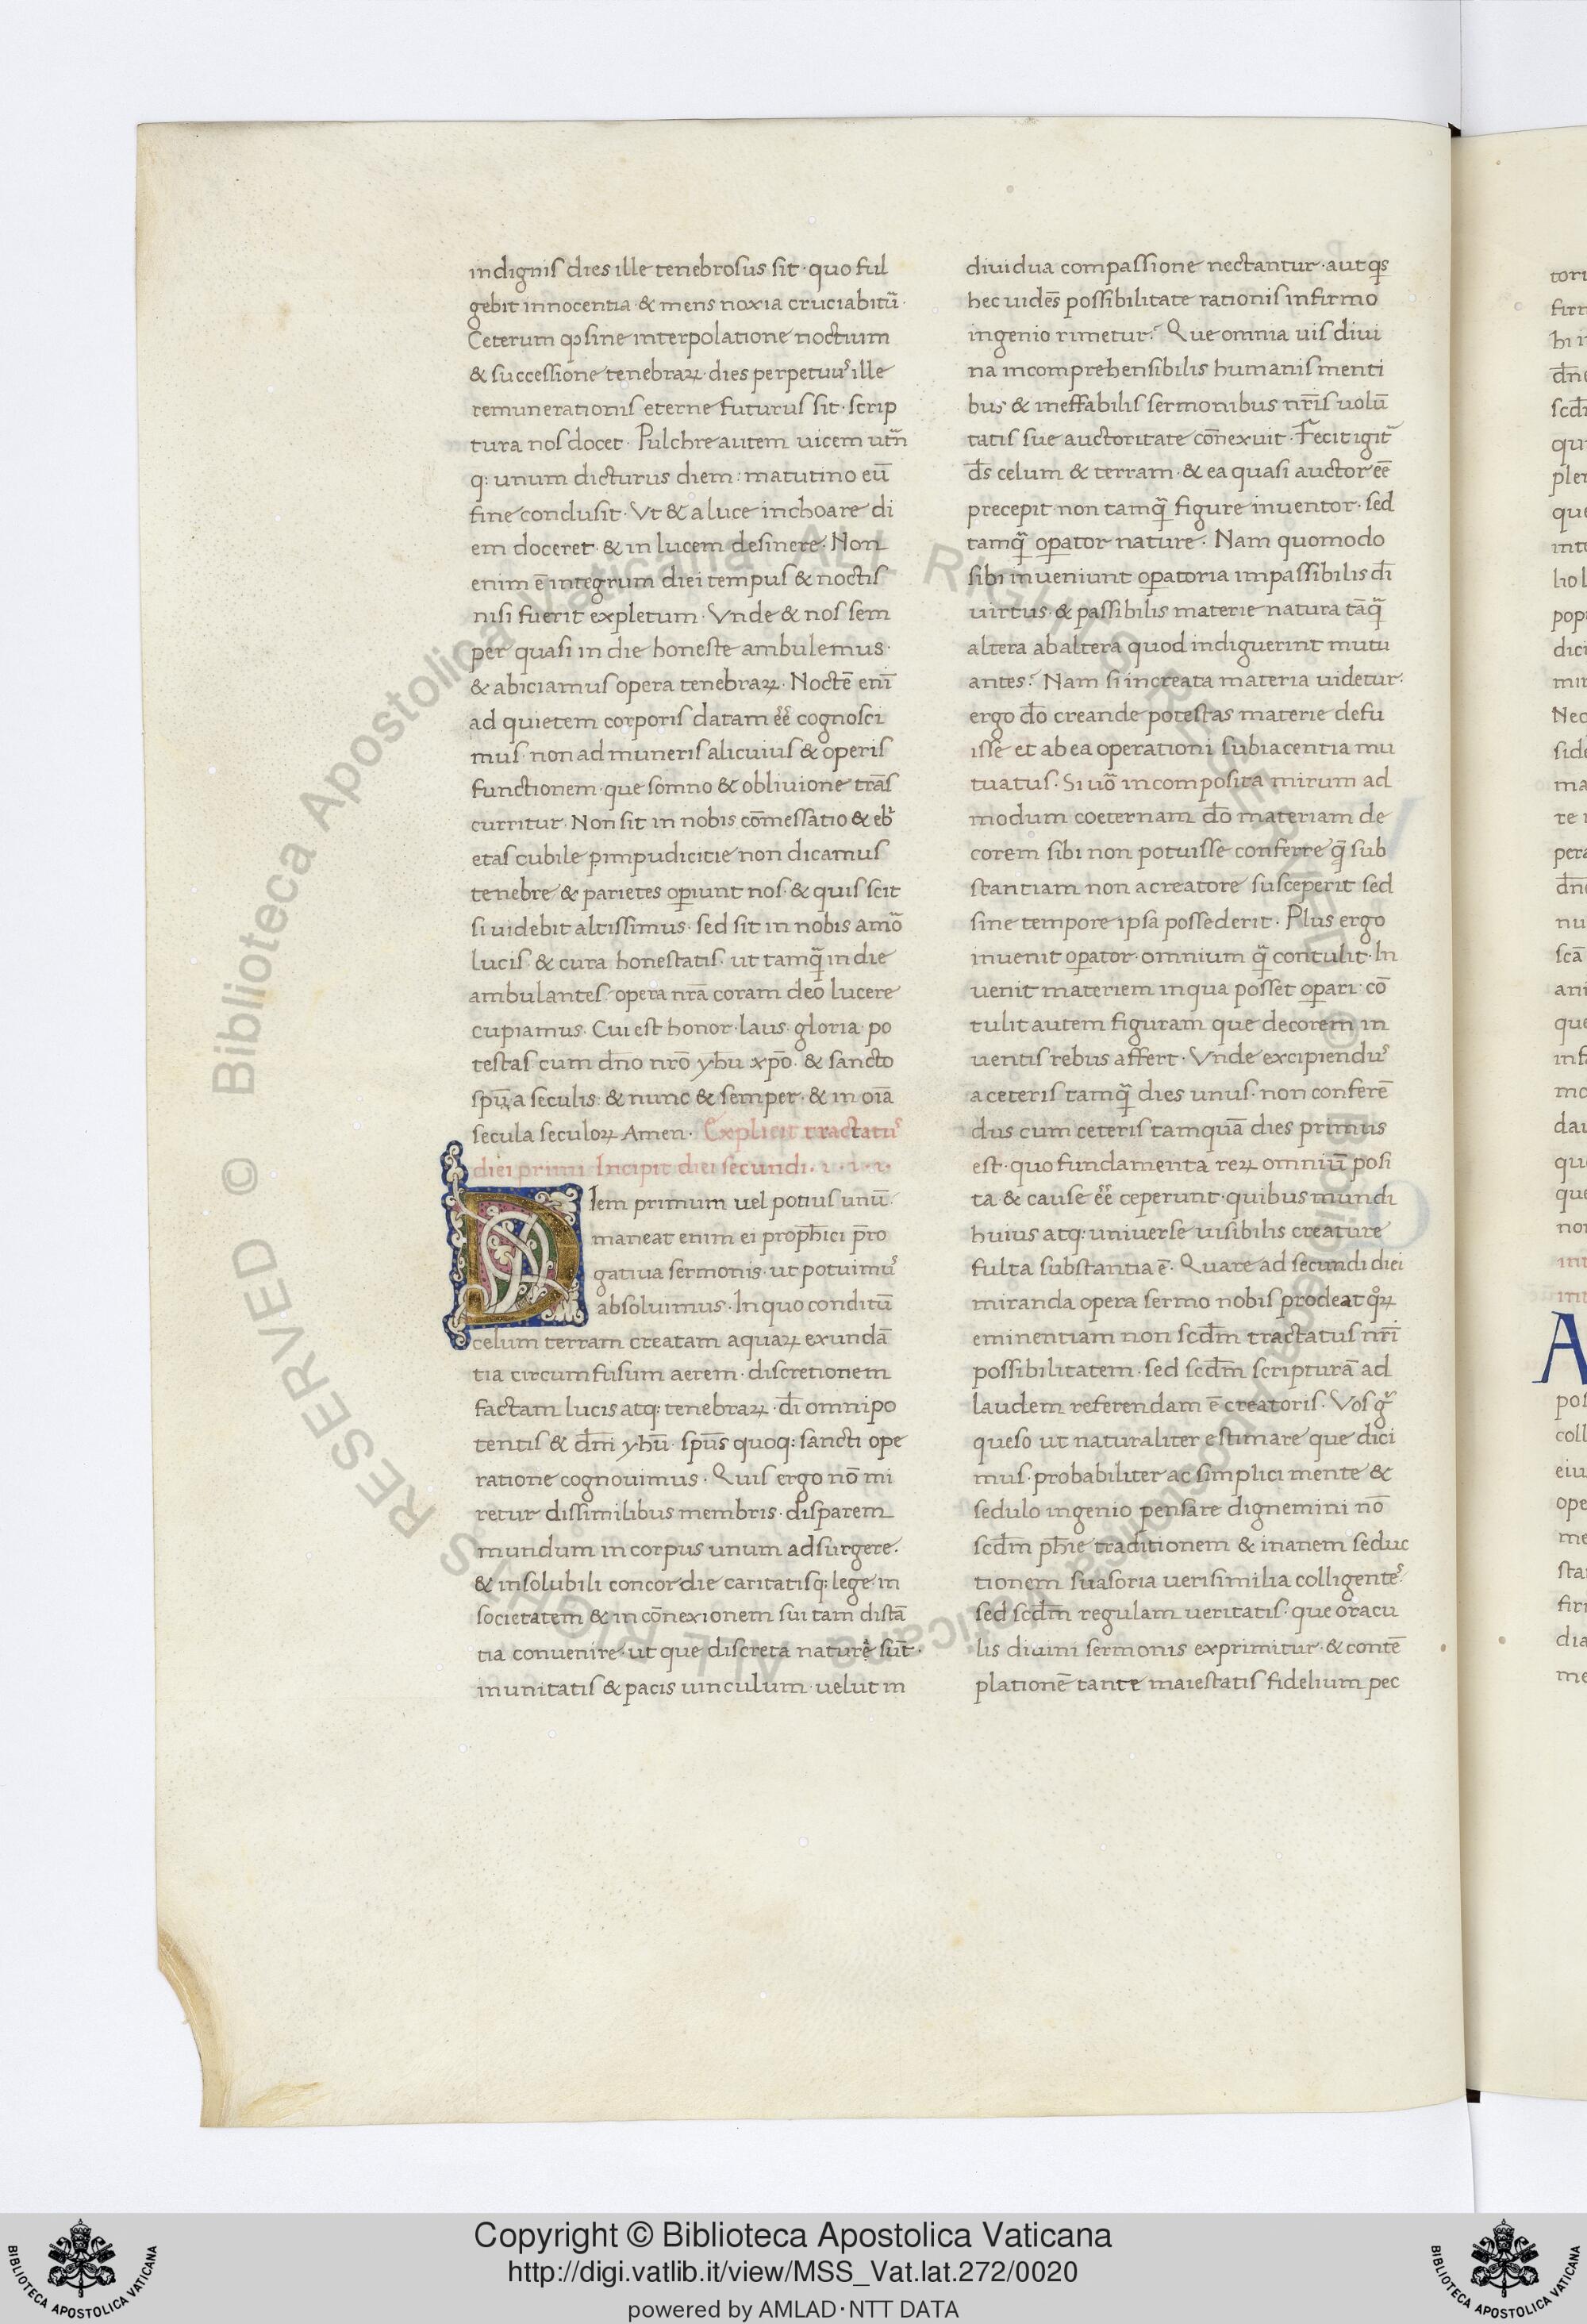 indignis dies ille tenebrosus sit· quo ful
gebit innocentia & mens noxia cruciabitu᷑·
Ceterum ꝙ sine interpolatione noctium
& successione tenebraꝝ· dies perpetuuꝰ ille
remunerationis eterne futurus sit· scrip
tura nos docet· Pulchre autem uicem utru᷑
q: unum dicturus diem: matutino eū
fine conclusit· Vt & a luce inchoare di
em doceret· & in lucem desinere· Non
enim ē integrum diei tempus & noctis
nisi fuerit expletum· Vnde & nos sem
per quasi in die honeste ambulemus·
& abiciamus opera tenebraꝝ· Noctē enī
ad quietem corporis datam ēē cognosci
mus· non ad muneris alicuius & operis
functionem· que somno & obliuione trās
curritur· Non sit in nobis cōmessatio & ebͥ
etas cubile ꝑimpudicitie non dicamus
tenebre & parietes oꝑiunt nos· & quis scit
si uidebit altissimus· sed sit in nobis amo᷑
lucis· & cura honestatis· ut tamq̄ in die
ambulantes· opera nr̄a coram deo lucere
cupiamus· Cui est honor· laus· gloria· po
testas cum dn̄o nr̄o yhū xp̄o· & sancto
spū a seculis· & nunc & semper· & in oīa
secula seculoꝝ Amen· Explicit tractatuꝰ
diei primi Incipit diei secundi·
Diem primum uel potius unū·
maneat enim ei prophīci p̄ro
gatiua sermonis· ut potuimuꝰ
absoluimus· In quo conditū
celum terram creatam aquaꝝ exundā
tia circumfusum aerem· discretionem
factam lucis atq: tenebraꝝ· dī omnipo
tentis & dn̄i yhū· spūs quoq: sancti ope
ratione cognouimus· Quis ergo nō mi
retur dissimilibus membris· disparem
mundum in corpus unum adsurgere·
& insolubili concordie caritatisq: lege in
societatem & in cōnexionem sui tam distā
tia conuenire· ut que discreta naturē sūt·
in unitatis & pacis uinculum· uelut in
diuidua compassione nectantur· aut qͥs
hec uidēs possibilitate rationis infirmo
ingenio rimetur? Que omnia uis diui
na incomprehensibilis humanis menti
bus & ineffabilis sermonibus nr̄is uolū
tatis sue auctoritate cōnexuit· Fecit igit᷑
ds̄ celum & terram· & ea quasi auctor eē
precepit non tamq̄ figure inuentor· sed
tamq̄ oꝑator nature· Nam quomodo
sibi inueniunt oꝑatoria impassibilis dī
uirtus· & passibilis materie natura tāq̄
altera ab altera quod indiguerint mutu
antes? Nam si increata materia uidetur·
ergo dō creande potestas materie defu
isse et ab ea operationi subiacentia mu
tuatus· Si uō incomposita mirum ad
modum coeternam dō materiam de
corem sibi non potuisse conferre q̄ sub
stantiam non a creatore susceperit sed
sine tempore ipsa possederit· Plus ergo
inuenit oꝑator· omnium q̄ contulit· In
uenit materiem in qua posset oꝑari· cō
tulit autem figuram que decorem in
uentis rebus affert· Vnde excipienduꝰ
a ceteris tamq̄ dies unus· non conferē
dus cum ceteris tamquā dies primus
est· quo fundamenta reꝝ omniū posi
ta & cause ēē ceperunt· quibus mundi
huius atq: uniuerse uisibilis creature
fulta substantia ē· Quare ad secundi diei
miranda opera sermo nobis prodeat qͦꝝ
eminentiam non scd̄m tractatus nr̄i
possibilitatem· sed scd̄m scripturā ad
laudem referendam ē creatoris· Vos gͦ
queso ut naturaliter estimare que dici
mus· probabiliter ac simplici mente &
sedulo ingenio pensare dignemini nō
scd̄m phīe traditionem & inanem seduc
tionem suasoria uerisimilia colligenteꝰ
sed scd̄m regulam ueritatis· que oracu
lis diuini sermonis exprimitur· & contē
platione᷑ tante maiestatis fidelium pec
Copyright © Biblioteca Apostolica Vaticana
http://digi.vatlib.it/view/MSS_Vat.lat.272/0020
powered by AMLAD·NTT DATA
BIBLIOTECA APOSTOLICA VATICANA
BIBLIOTECA APOSTOLICA VATICANA